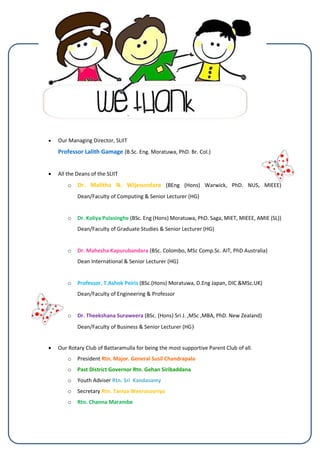 We thank
• Our Managing Director, SLIIT
Professor Lalith Gamage (B.Sc. Eng. Moratuwa, PhD. Br. Col.)
• All the Deans of the SLIIT
o Dr. Malitha N. Wijesundara (BEng (Hons) Warwick, PhD. NUS, MIEEE)
Dean/Faculty of Computing & Senior Lecturer (HG)
o Dr. Koliya Pulasinghe (BSc. Eng (Hons) Moratuwa, PhD. Saga, MIET, MIEEE, AMIE (SL))
Dean/Faculty of Graduate Studies & Senior Lecturer (HG)
o Dr. Mahesha Kapurubandara (BSc. Colombo, MSc Comp.Sc. AIT, PhD Australia)
Dean International & Senior Lecturer (HG)
o Professor. T.Ashok Peiris (BSc.(Hons) Moratuwa, D.Eng Japan, DIC &MSc.UK)
Dean/Faculty of Engineering & Professor
o Dr. Theekshana Suraweera (BSc. (Hons) Sri J. ,MSc ,MBA, PhD. New Zealand)
Dean/Faculty of Business & Senior Lecturer (HG)
• Our Rotary Club of Battaramulla for being the most supportive Parent Club of all.
o President Rtn. Major. General Susil Chandrapala
o Past District Governor Rtn. Gehan Siribaddana
o Youth Adviser Rtn. Sri Kandasamy
o Secretary Rtn. Taniya Weerasooriya
o Rtn. Channa Marambe